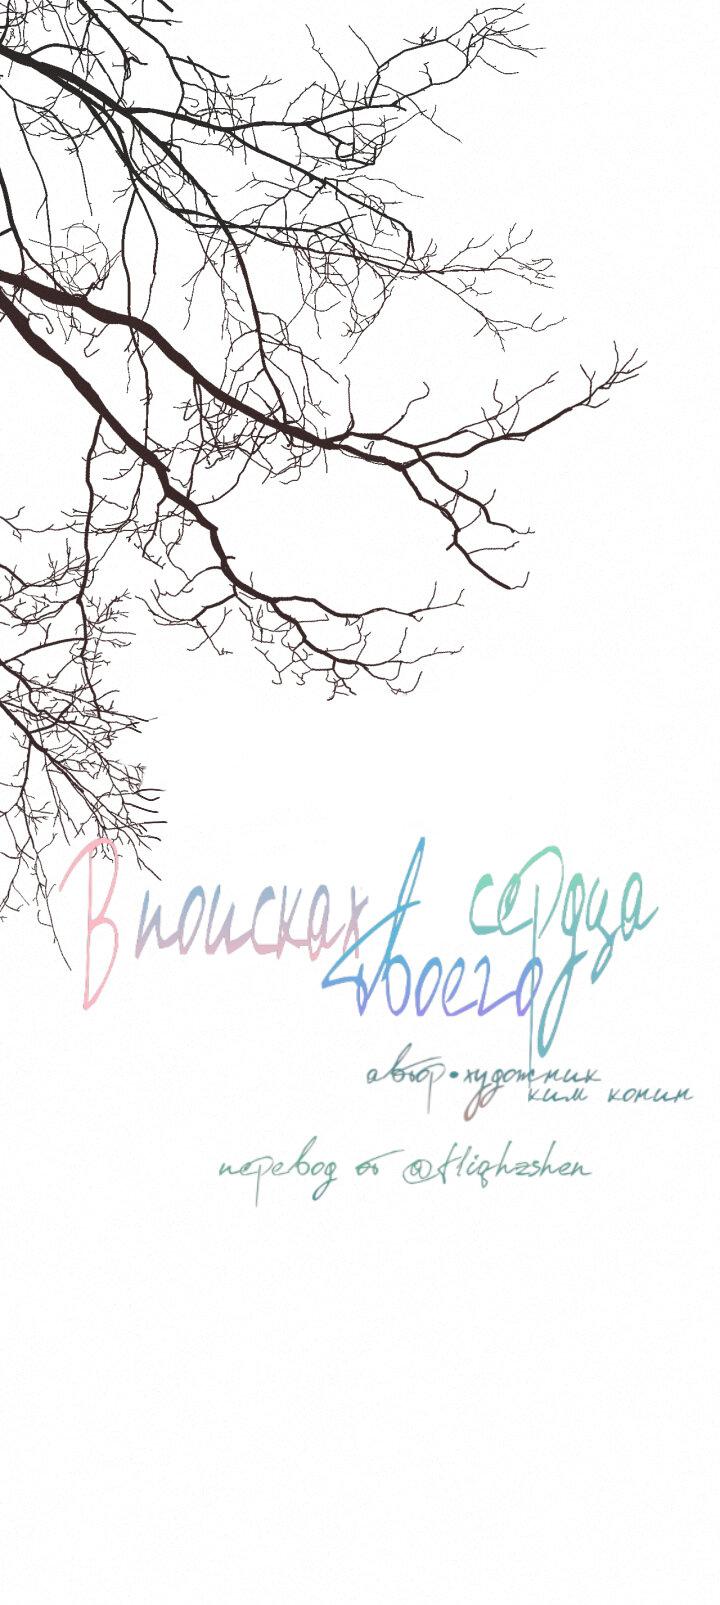 В поисках твоего сердца
автор•художник
ким конин
перевод от @Highzshen